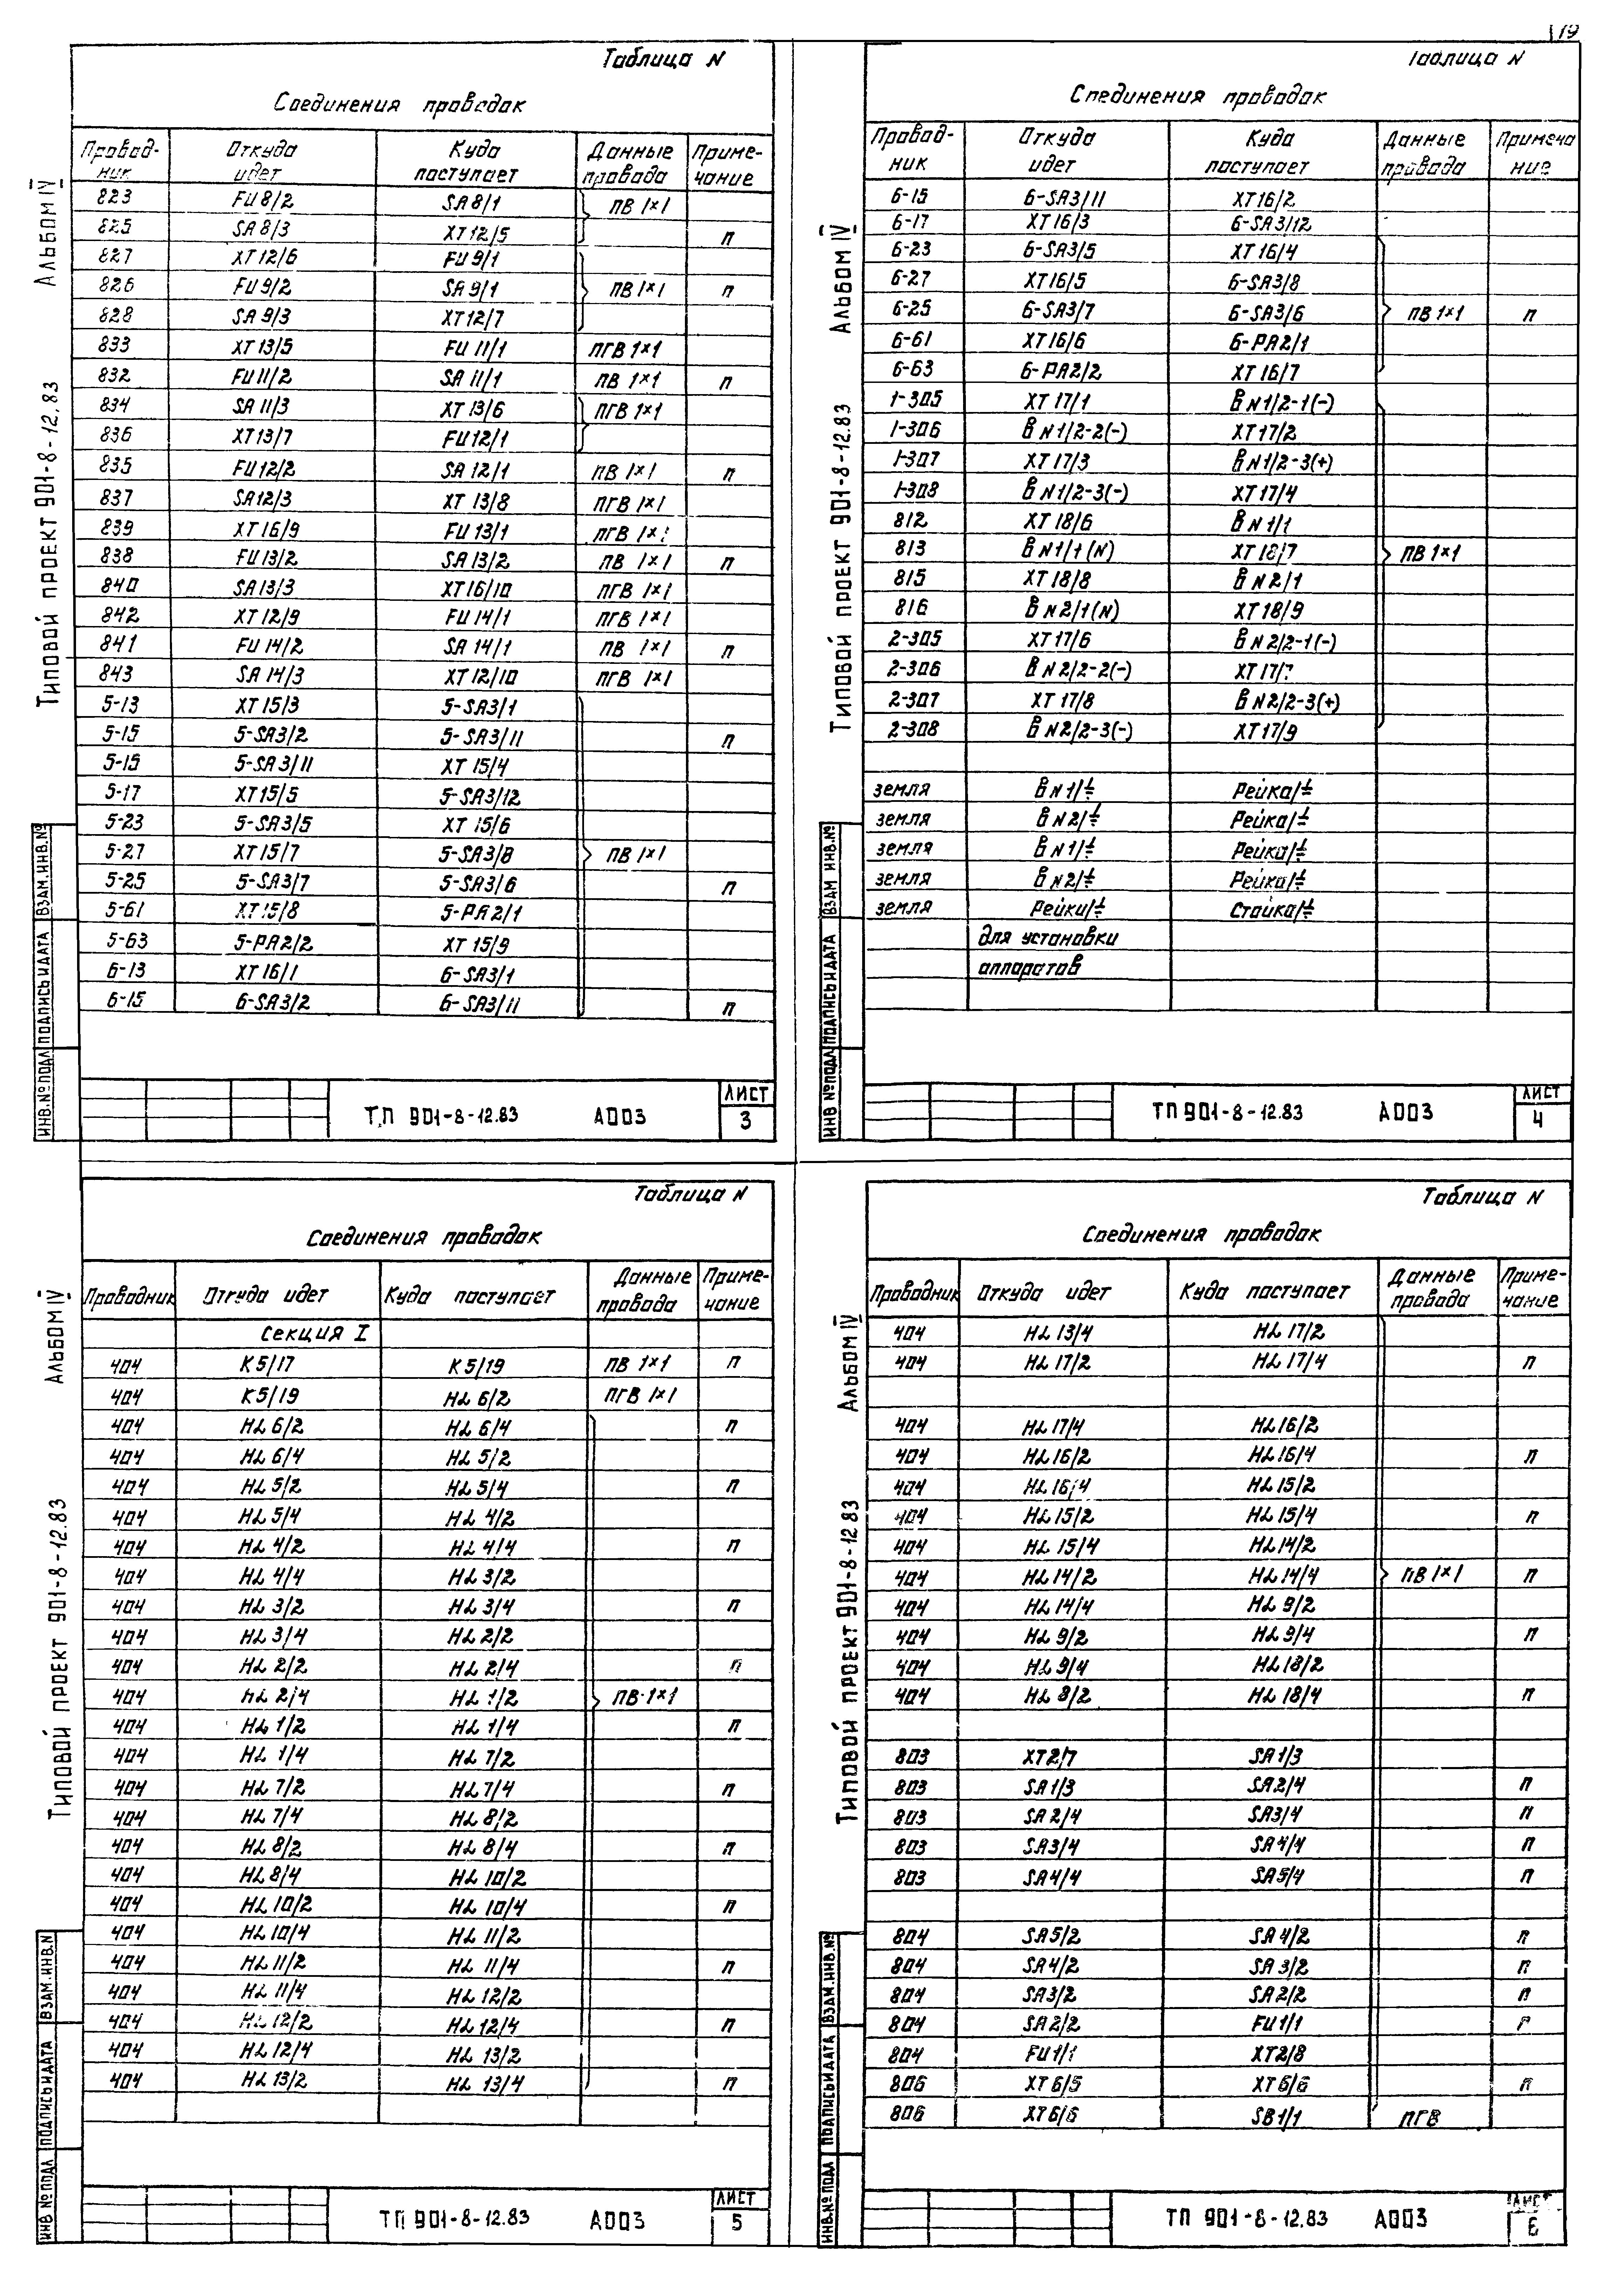 19
Таблица N
Соединения проводок
Провод-ник Откуда идет Куда поступает Данные провода Приме-чание
823 FU 8/2 SA 8/1 ПВ 1×1
825 SA 8/3 XT 12/5 п
827 XT 12/6 FU 9/1
826 FU 9/2 SA 9/1 ПВ 1×1 п
828 SA 9/3 XT 12/7
833 XT 13/5 FU 11/1 ПГВ 1×1
832 FU 11/2 SA 11/1 ПВ 1×1 п
834 SA 11/3 XT 13/6 ПГВ 1×1
836 XT 13/7 FU 12/1
835 FU 12/2 SA 12/1 ПВ 1×1 п
837 SA 12/3 XT 13/8 ПГВ 1×1
839 XT 16/9 FU 13/1 ПГВ 1×1
838 FU 13/2 SA 13/2 ПВ 1×1 п
840 SA 13/3 XT 16/10 ПГВ 1×1
842 XT 12/9 FU 14/1 ПГВ 1×1
841 FU 14/2 SA 14/1 ПВ 1×1 п
843 SA 14/3 XT 12/10 ПГВ 1×1
5-13 XT 15/3 5-SA3/1
5-15 5-SA3/2 5-SA3/11 п
5-15 5-SA3/11 XT 15/4
5-17 XT 15/5 5-SA3/12
5-23 5-SA3/5 XT 15/6
5-27 XT 15/7 5-SA3/8 ПВ 1×1
5-25 5-SA3/7 5-SA3/6 п
5-61 XT 15/8 5-PA2/1
5-63 5-PA2/2 XT 15/9
6-13 XT 16/1 6-SA3/1
6-15 6-SA3/2 6-SA3/11 п
ТП 901-8-12.83 А003 ЛИСТ 3
Типовой проект 901-8-12.83 Альбом IV
ИНВ.№ПОДЛ ПОДПИСЬ И ДАТА ВЗАМ.ИНВ.№
Таблица N
Соединения проводок
Провод-ник Откуда идет Куда поступает Данные провода Примеча ние
6-15 6-SA3/11 XT 16/2
6-17 XT 16/3 6-SA3/12
6-23 6-SA3/5 XT 16/4
6-27 XT 16/5 6-SA3/8
6-25 6-SA3/7 6-SA3/6 ПВ 1×1 п
6-61 XT 16/6 6-PA2/1
6-63 6-PA2/2 XT 16/7
1-305 XT 17/1 ВN1/2-1(-)
1-306 ВN1/2-2(-) XT 17/2
1-307 XT 17/3 ВN1/2-3(+)
1-308 ВN1/2-3(-) XT 17/4
812 XT 18/6 ВN1/1
813 ВN1/1(N) XT 18/7 ПВ 1×1
815 XT 18/8 ВN2/1
816 ВN2/1(N) XT 18/9
2-305 XT 17/6 ВN2/2-1(-)
2-306 ВN2/2-2(-) XT 17/7
2-307 XT 17/8 ВN2/2-3(+)
2-308 ВN2/2-3(-) XT 17/9
земля ВN1/⏚ Рейка/⏚
земля ВN2/⏚ Рейка/⏚
земля ВN1/⏚ Рейка/⏚
земля ВN2/⏚ Рейка/⏚
земля Рейки/⏚ Стойка/⏚
для установки
аппаратов
ТП 901-8-12.83 А003 ЛИСТ 4
Типовой проект 901-8-12.83 Альбом IV
ИНВ №ПОДЛ ПОДПИСЬ И ДАТА ВЗАМ ИНВ.№
Таблица N
Соединения проводок
Проводник Откуда идет Куда поступает Данные провода Приме-чание
Секция I
404 К5/17 К5/19 ПВ 1×1 п
404 К5/19 HL 6/2 ПГВ 1×1
404 HL 6/2 HL 6/4 п
404 HL 6/4 HL 5/2
404 HL 5/2 HL 5/4 п
404 HL 5/4 HL 4/2
404 HL 4/2 HL 4/4 п
404 HL 4/4 HL 3/2
404 HL 3/2 HL 3/4 п
404 HL 3/4 HL 2/2
404 HL 2/2 HL 2/4 п
404 HL 2/4 HL 1/2 ПВ 1×1
404 HL 1/2 HL 1/4 п
404 HL 1/4 HL 7/2
404 HL 7/2 HL 7/4 п
404 HL 7/4 HL 8/2
404 HL 8/2 HL 8/4 п
404 HL 8/4 HL 10/2
404 HL 10/2 HL 10/4 п
404 HL 10/4 HL 11/2
404 HL 11/2 HL 11/4 п
404 HL 11/4 HL 12/2
404 HL 12/2 HL 12/4 п
404 HL 12/4 HL 13/2
404 HL 13/2 HL 13/4 п
ТП 901-8-12.83 А003 ЛИСТ 5
Типовой проект 901-8-12.83 Альбом IV
ИНВ №ПОДЛ ПОДПИСЬ И ДАТА ВЗАМ.ИНВ.N
Таблица N
Соединения проводок
Проводник Откуда идет Куда поступает Данные провода Приме-чание
404 HL 13/4 HL 17/2
404 HL 17/2 HL 17/4 п
404 HL 17/4 HL 16/2
404 HL 16/2 HL 16/4 п
404 HL 16/4 HL 15/2
404 HL 15/2 HL 15/4 п
404 HL 15/4 HL 14/2
404 HL 14/2 HL 14/4 ПВ 1×1 п
404 HL 14/4 HL 9/2
404 HL 9/2 HL 9/4 п
404 HL 9/4 HL 18/2
404 HL 8/2 HL 18/4 п
803 XT2/7 SA1/3
803 SA1/3 SA2/4 п
803 SA2/4 SA3/4 п
803 SA3/4 SA4/4 п
803 SA4/4 SA5/4 п
804 SA5/2 SA4/2 п
804 SA4/2 SA3/2 п
804 SA3/2 SA2/2 п
804 SA2/2 FU1/1 п
804 FU1/1 XT2/8
806 XT6/5 XT6/6 п
806 XT6/6 SB1/1 ПГВ
ТП 901-8-12.83 А003 ЛИСТ 6
Типовой проект 901-8-12.83 Альбом IV
ИНВ.№ПОДЛ ПОДПИСЬ И ДАТА ВЗАМ.ИНВ.№